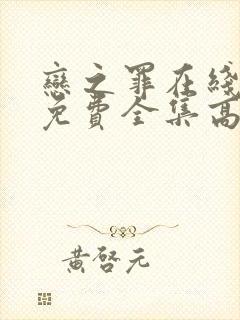 戀之罪在綫
免費全集高
黃啓元